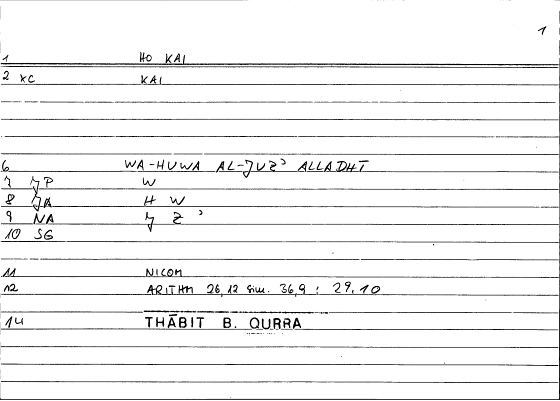 1
1 HO KAI
2 XC KAI
6 WA-HUWA AL-JUZʾ ALLADHĪ
7 JP W
8 JA H W
9 NA J Z ʾ
10 SG
11 NICOM
12 ARITHM 26,12 sim. 36,9 ; 29,10
14 THĀBIT B. QURRA